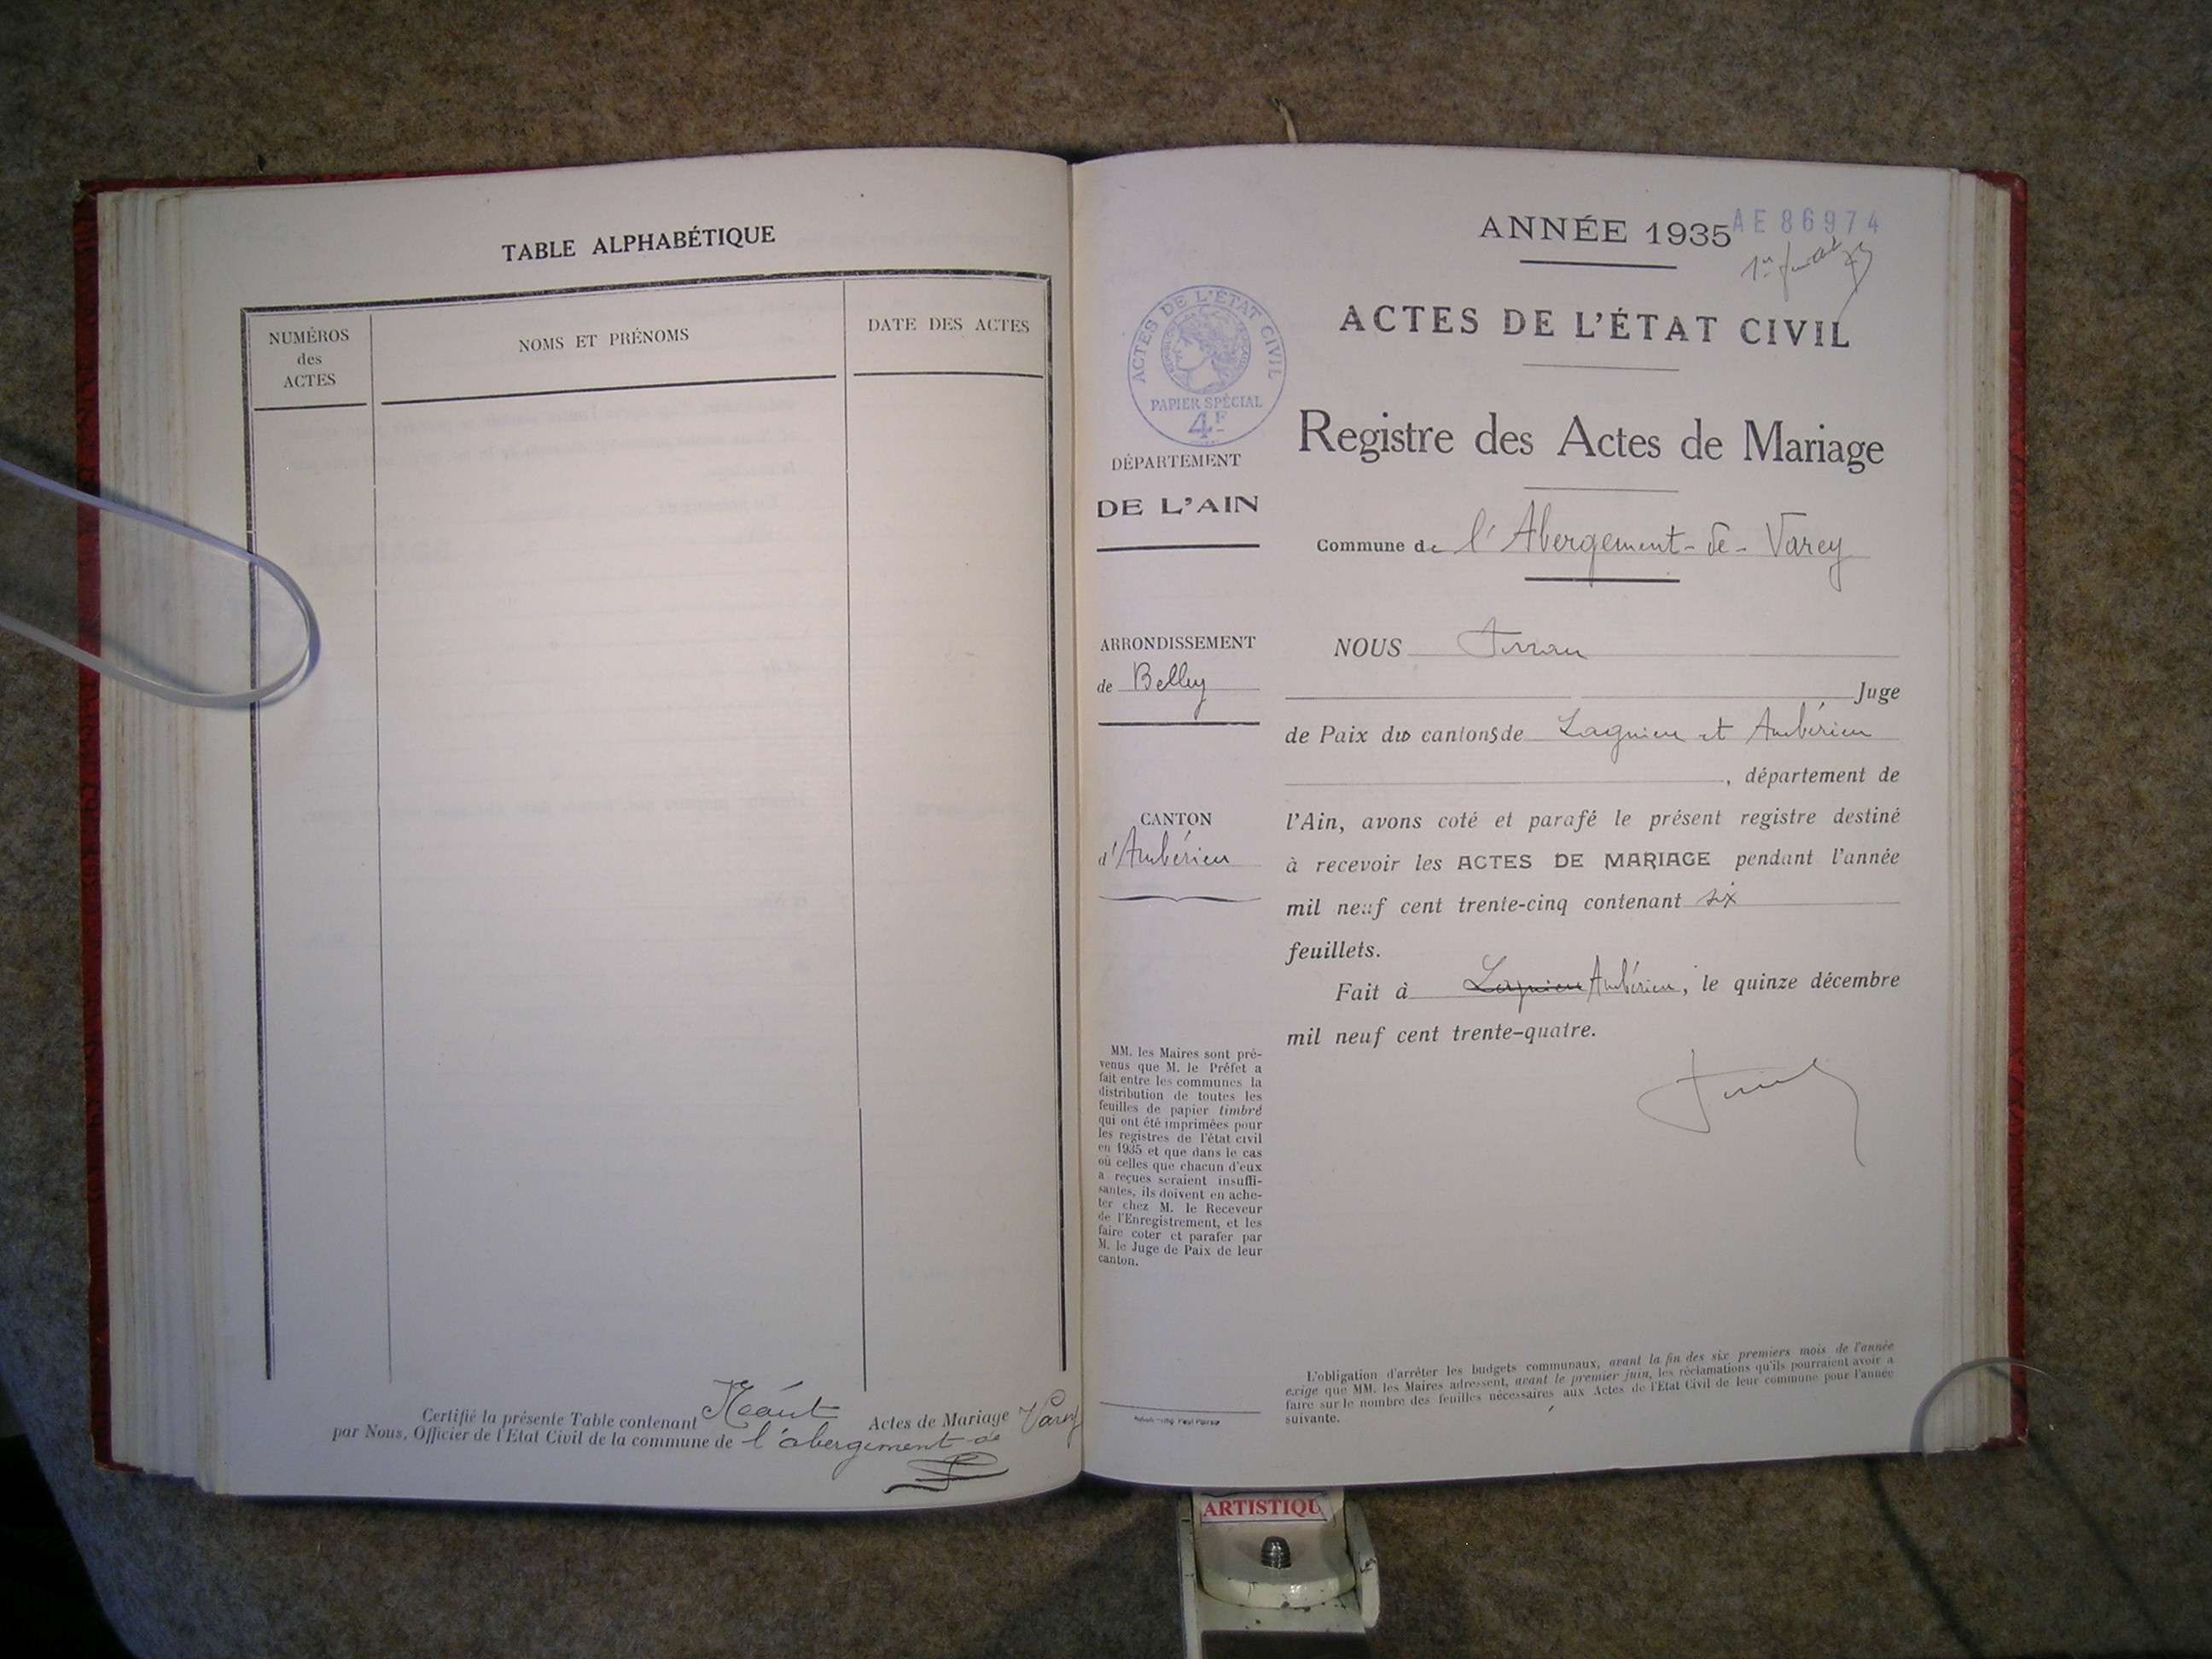 TABLE ALPHABÉTIQUE
NUMÉROS
des
ACTES
NOMS ET PRÉNOMS
DATE DES ACTES
Certifié la présente Table contenant Néant Actes de Mariage
par Nous, Officier de l'Etat Civil de la commune de l'abergement de Varey
ANNÉE 1935
AE 86974
1er feuillet
ACTES DE L'ÉTAT CIVIL
Registre des Actes de Mariage
Commune de l'Abergement-de-Varey
ACTES DE L'ÉTAT CIVIL
PAPIER SPÉCIAL
4F
DÉPARTEMENT
DE L'AIN
ARRONDISSEMENT
de Belley
CANTON
d'Ambérieu
MM. les Maires sont pré-
venus que M. le Préfet a
fait entre les communes la
distribution de toutes les
feuilles de papier timbré
qui ont été imprimées pour
les registres de l'état civil
en 1935 et que dans le cas
où celles que chacun d'eux
a reçues seraient insuffi-
santes, ils doivent en ache-
ter chez M. le Receveur
de l'Enregistrement, et les
faire coter et parafer par
M. le Juge de Paix de leur
canton.
NOUS
Juge
de Paix des cantons de Lagnieu et Ambérieu
, département de
l'Ain, avons coté et parafé le présent registre destiné
à recevoir les ACTES DE MARIAGE pendant l'année
mil neuf cent trente-cinq contenant six
feuillets.
Fait à Lagnieu Ambérieu, le quinze décembre
mil neuf cent trente-quatre.
L'obligation d'arrêter les budgets communaux, avant la fin des six premiers mois de l'année
exige que MM. les Maires adressent, avant le premier juin, les réclamations qu'ils pourraient avoir à
faire sur le nombre des feuilles nécessaires aux Actes de l'Etat Civil de leur commune pour l'année
suivante.
ARTISTIQU